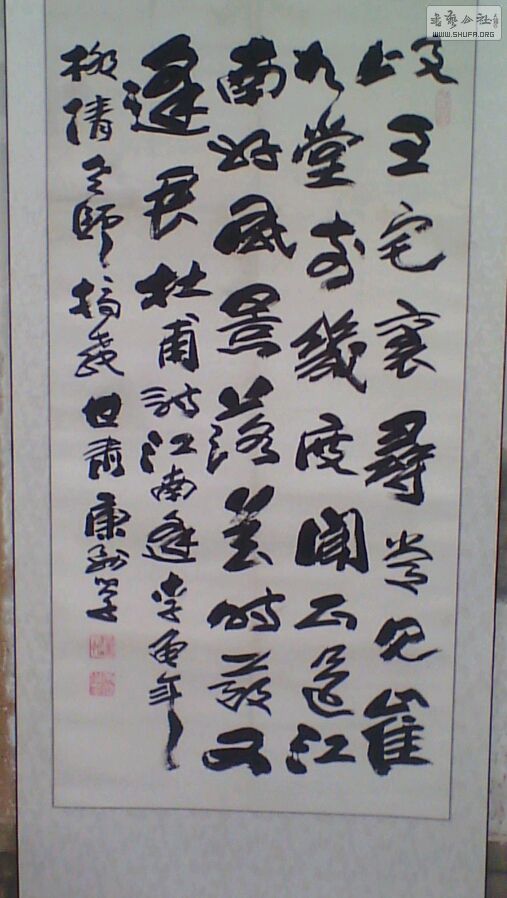 岐王宅裏尋常見崔
九堂前幾度聞正是江
南好風景落花時節又
逢君杜甫詩江南逢李龜年
柳清老師甘肅康
書藝公社
WWW.SHUFA.ORG